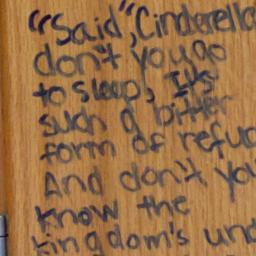 "Said", Cinderella
don't you go
to sleep, It's
such a bitter
form of refug
And don't you
know the
kingdom's und